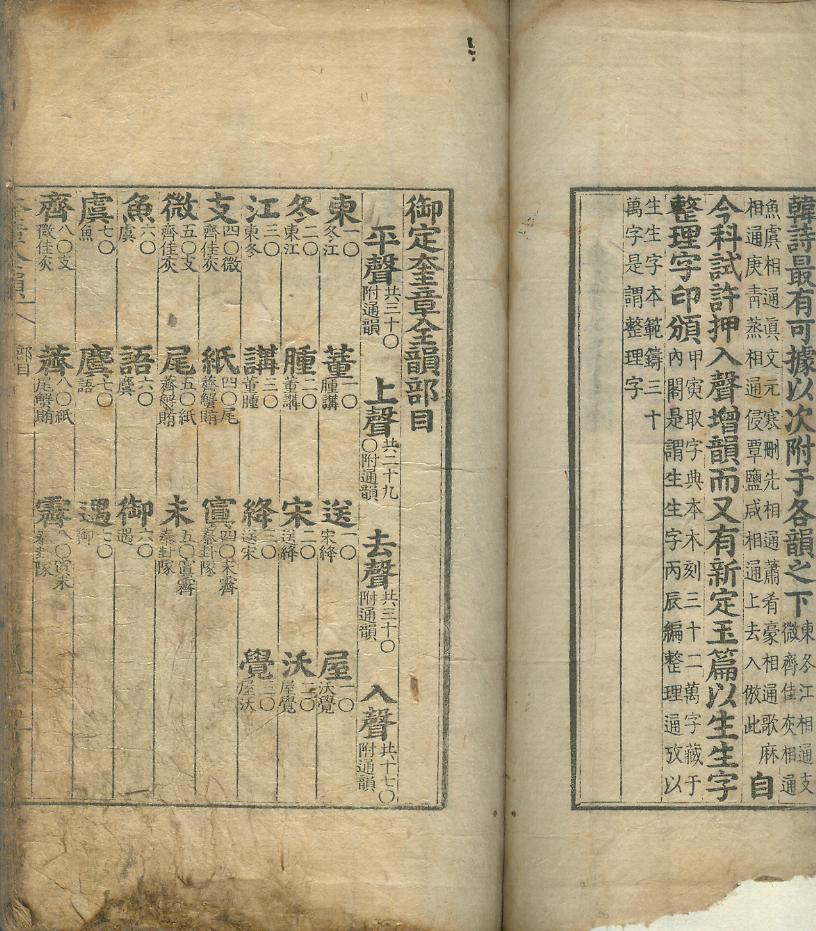 韓詩最有可據以次附于各韻之下東冬江相通支微齊佳灰相通
魚虞相通眞文元寒刪先相通蕭肴豪相通歌麻相通庚靑蒸相通侵覃鹽咸相通上去入倣此自
今科試許押入聲增韻而又有新定玉篇以生生字
整理字印頒甲寅取字典本木刻三十二萬字藏于內閣是謂生生字丙辰編整理通攷以
生生字本範鑄三十萬字是謂整理字
御定奎章全韻部目
平聲共三十〇附通韻 上聲共二十九〇附通韻 去聲共三十〇附通韻 入聲共十七〇附通韻
東一〇冬江 董一〇腫講 送一〇宋絳 屋一〇沃覺
冬二〇東江 腫二〇董講 宋二〇送絳 沃二〇屋覺
江三〇東冬 講三〇董腫 絳三〇送宋 覺三〇屋沃
支四〇微齊佳灰 紙四〇尾薺蟹賄 寘四〇未霽泰卦隊
微五〇支齊佳灰 尾五〇紙薺蟹賄 未五〇寘霽泰卦隊
魚六〇虞 語六〇麌 御六〇遇
虞七〇魚 麌七〇語 遇七〇御
齊八〇支微佳灰 薺八〇紙尾蟹賄 霽八〇寘未泰卦隊
奎章全韻 部目